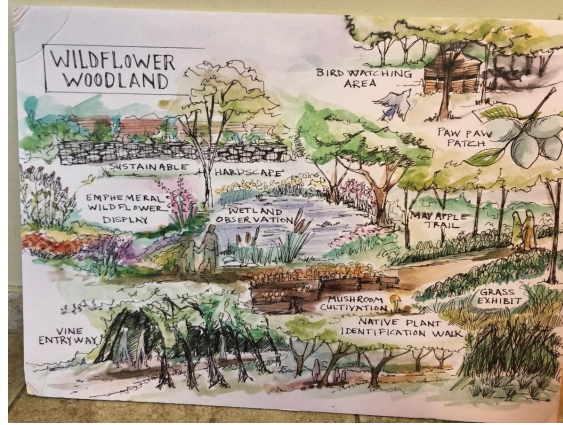 WILDFLOWER
WOODLAND
BIRD WATCHING
AREA
PAW PAW
PATCH
SUSTAINABLE HARDSCAPE
EMPHEMERAL
WILDFLOWER
DISPLAY
WETLAND
OBSERVATION
MAY APPLE
TRAIL
MUSHROOM
CULTIVATION
GRASS
EXHIBIT
VINE
ENTRYWAY
NATIVE PLANT
IDENTIFICATION WALK